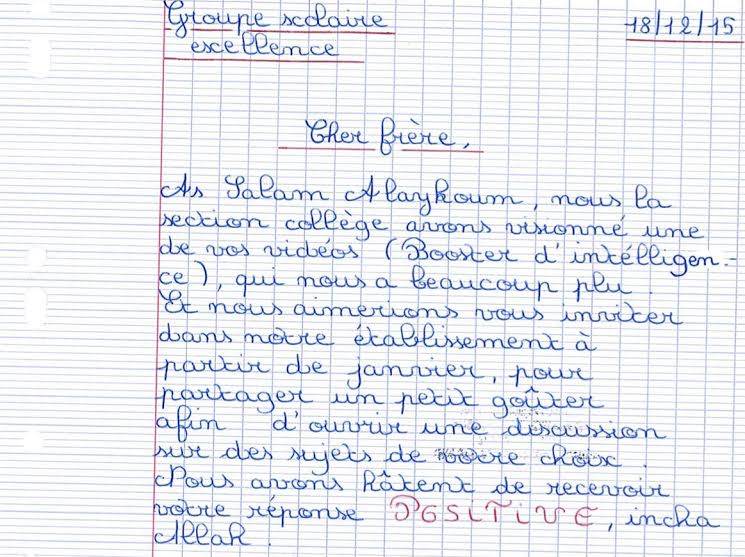 Groupe scolaire
excellence
18/12/15
Cher frère,
As Salam Alaykoum, nous la
section collège avons visionné une
de vos vidéos (Booster d'intélligen-
ce), qui nous a beaucoup plu.
Et nous aimerions vous inviter
dans notre établissement à
partir de janvier, pour
partager un petit goûter
afin d'ouvrir une discussion
sur des sujets de votre choix.
Nous avons hâtent de recevoir
votre réponse POSITIVE, incha
Allah.